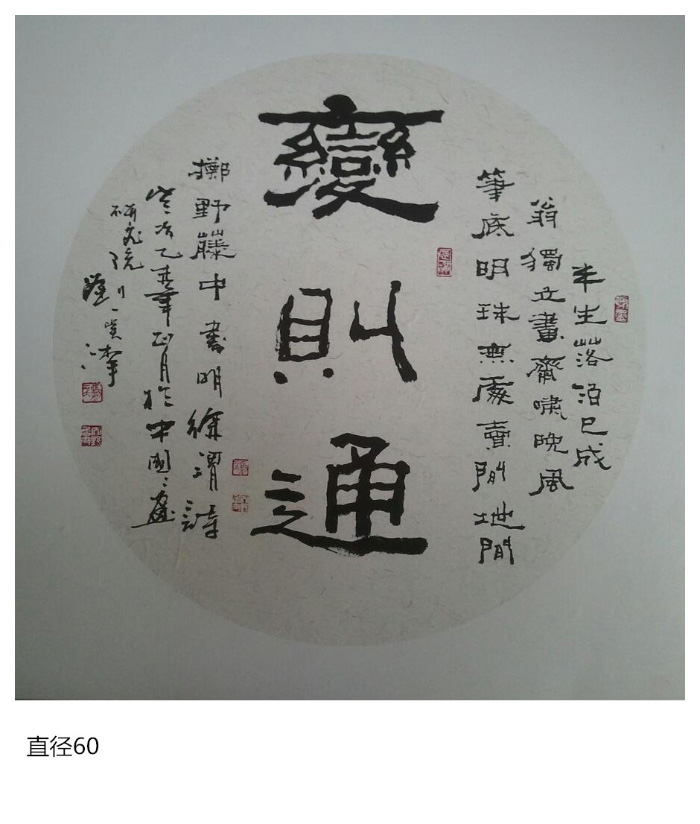 半生落泊已成
翁獨立畫齋嘯晚風
筆底明珠無處賣閒地閒
變則通
擲野藤中書明徐渭詩
乙未年正月於中國〻畫
研究院
直径60